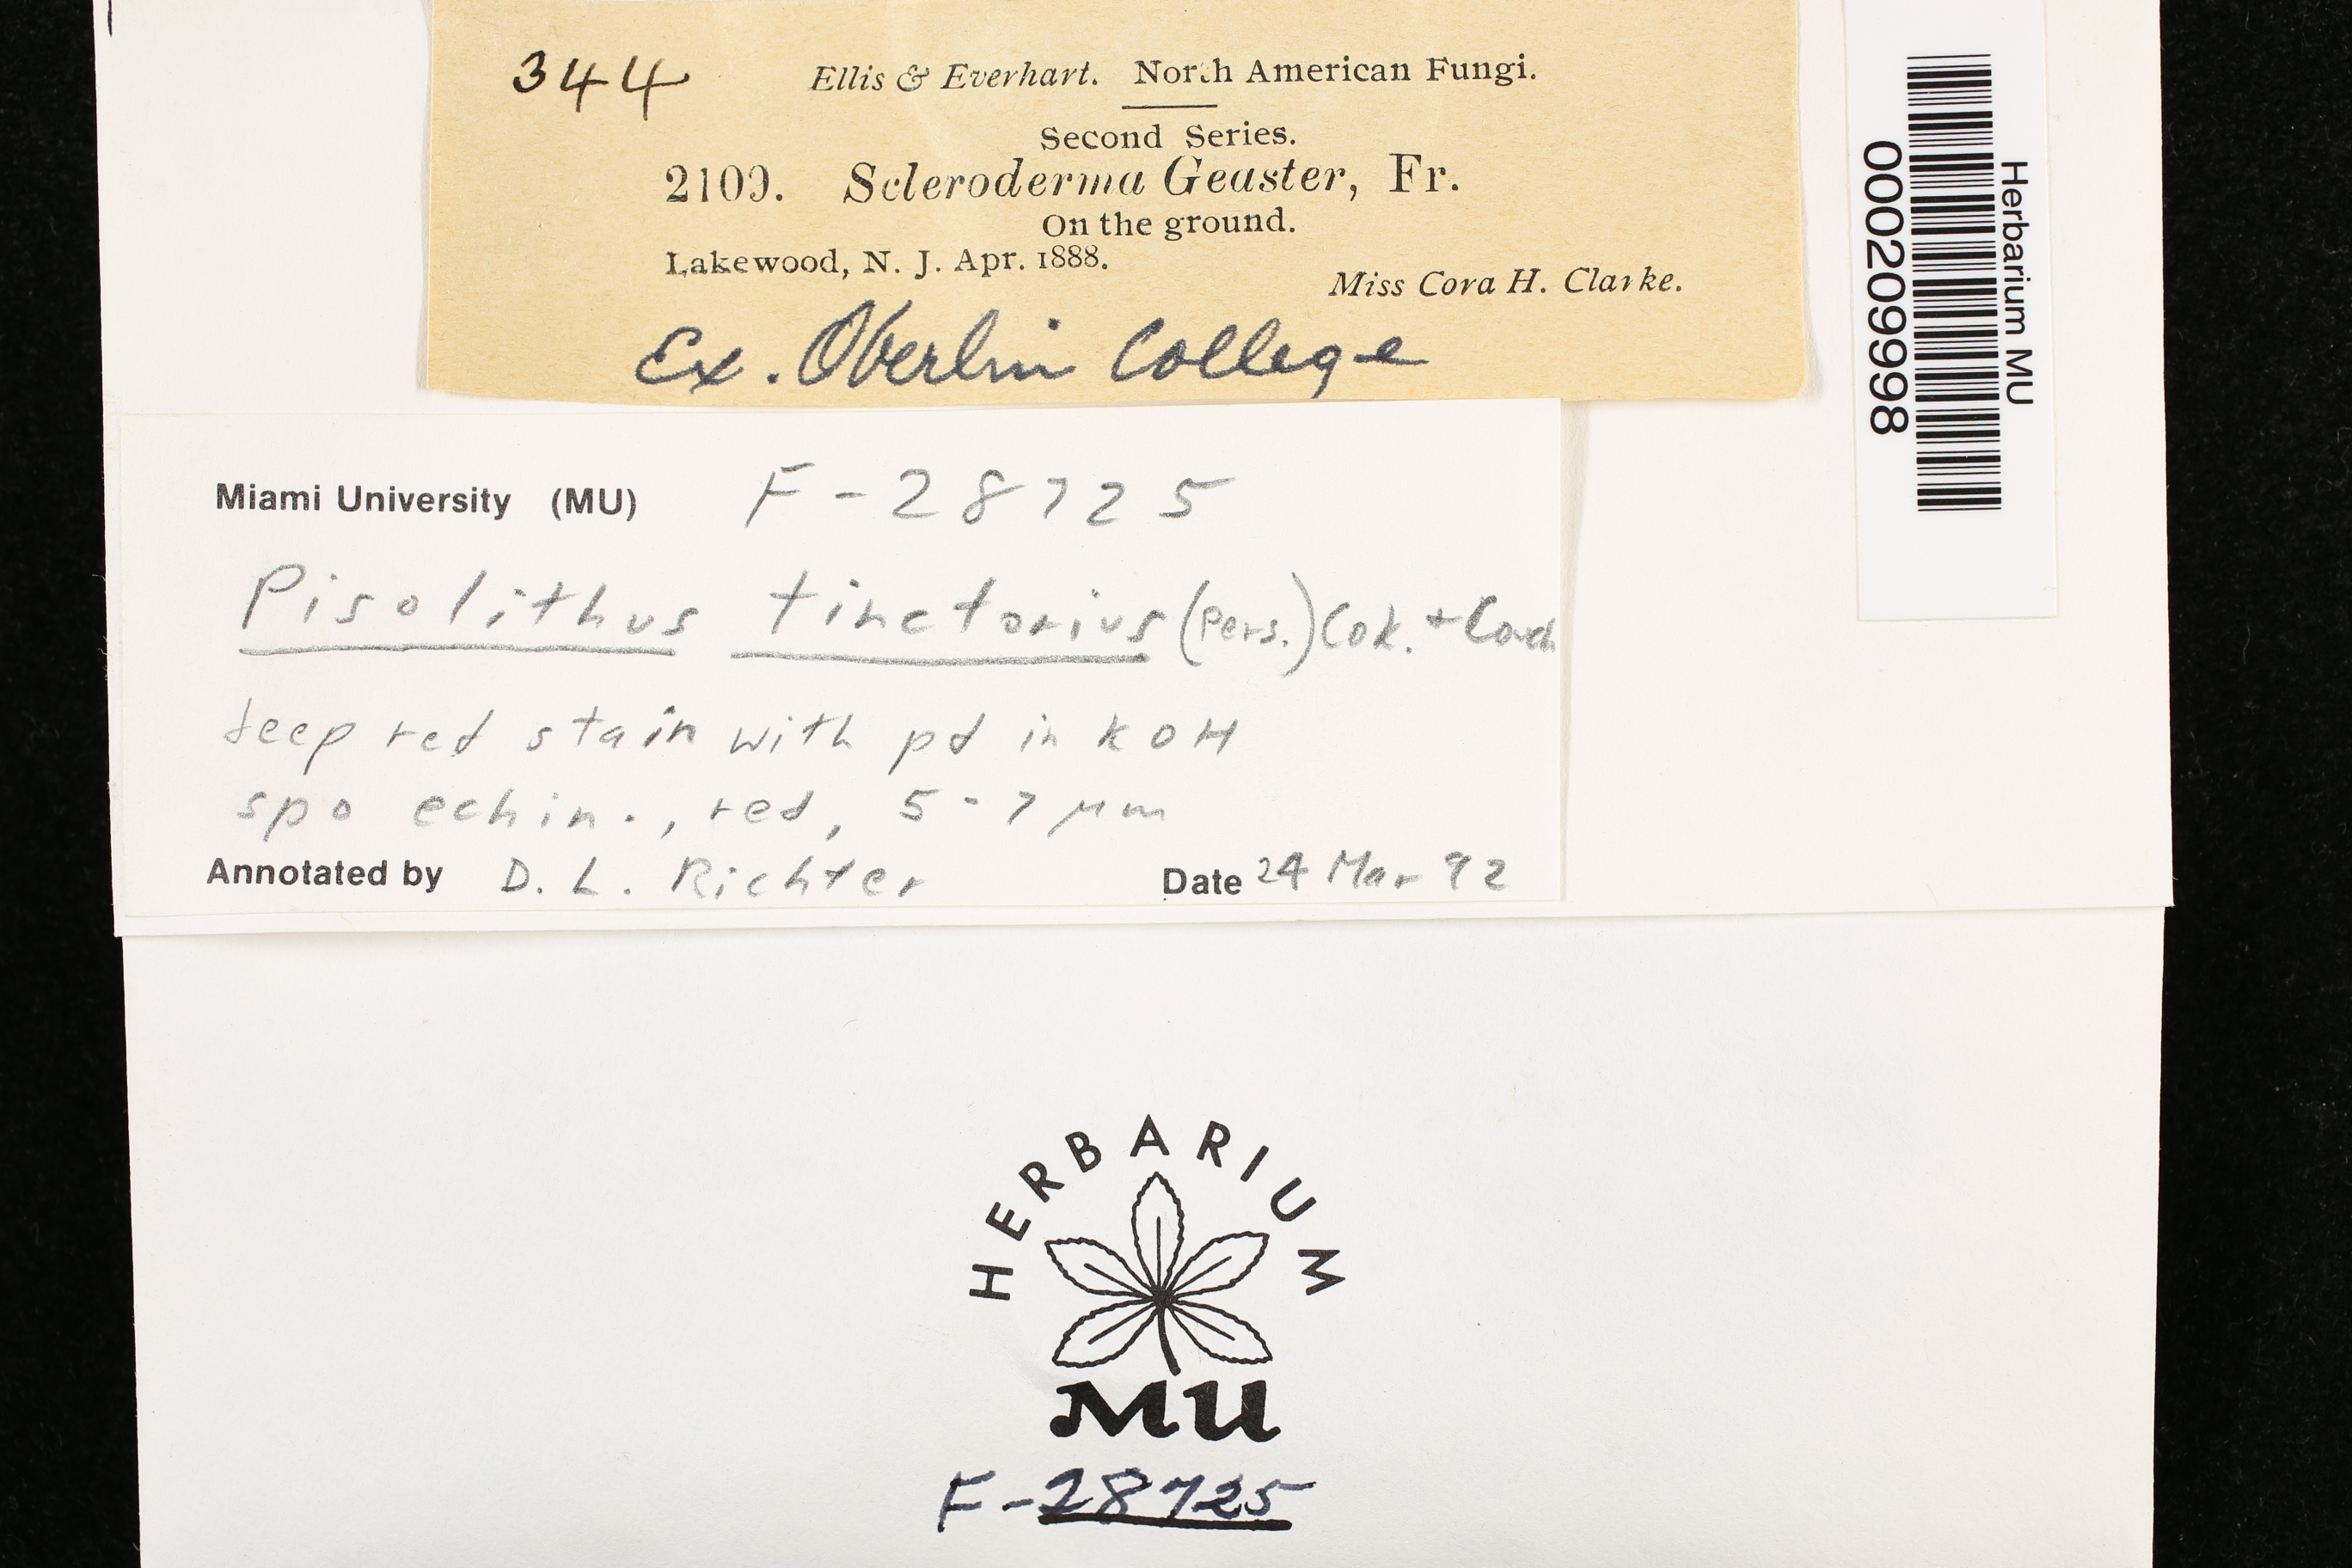 344
Ellis & Everhart. North American Fungi.
Second Series.
2109. Scleroderma Geaster, Fr.
On the ground.
Lakewood, N. J. Apr. 1888.
Miss Cora H. Clarke.
Ex. Oberlin College
Herbarium MU
000209998
Miami University (MU) F-28725
Pisolithus tinctorius (Pers.) Cok. + Couch
deep red stain with pd in KOH
spo echin., red, 5-7 µm
Annotated by D. L. Richter Date 24 Mar 92
HERBARIUM
MU
F-28725